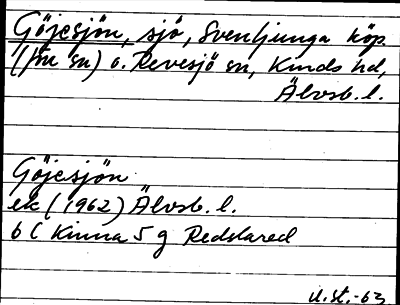 Göjesjön, sjö, Svenljunga köp.
(fm sn) o. Revesjö sn, Kinds hd,
Älvsb. l.
Göjesjön
ek (1962) Älvsb. l.
6 C Kinna 5 g Redslared
U. St. -63